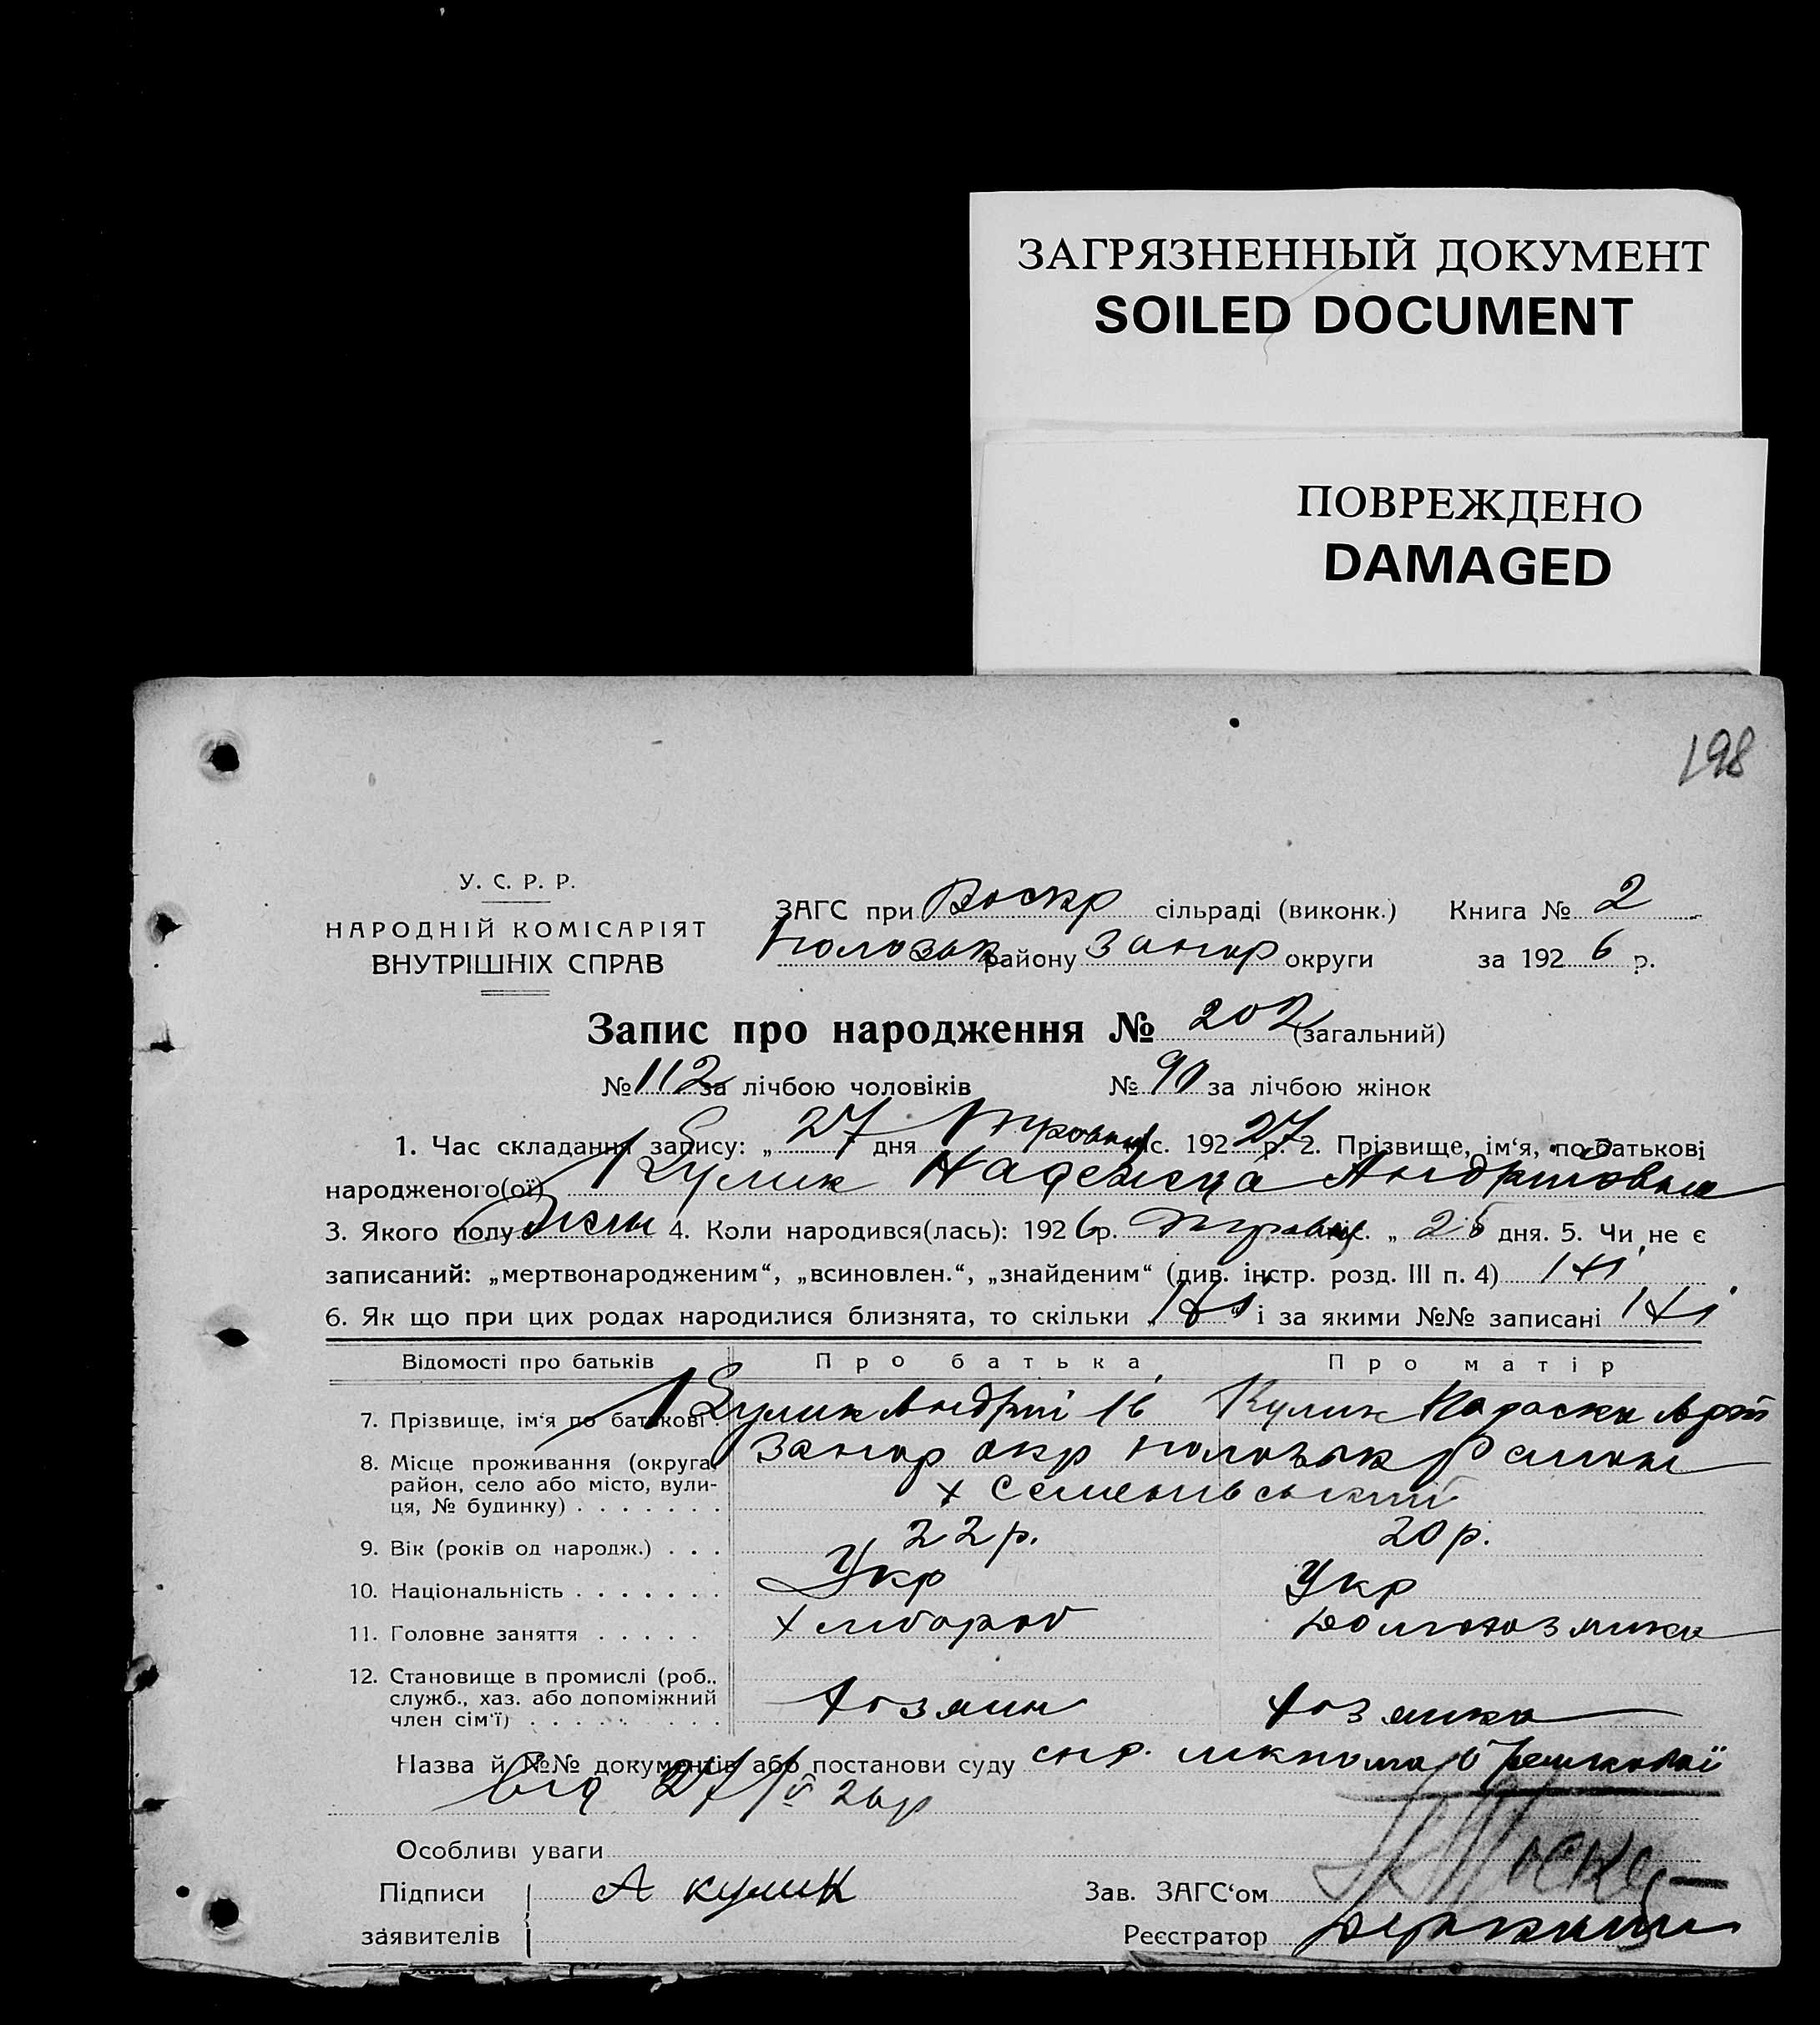 ЗАГРЯЗНЕННЫЙ ДОКУМЕНТ
SOILED DOCUMENT
ПОВРЕЖДЕНО
DAMAGED
198
У. С. Р. Р.
НАРОДНІЙ КОМІСАРІЯТ
ВНУТРІШНІХ СПРАВ
ЗАГС при Воскр сільраді (виконк.) Книга № 2
Пологък району Запор округи за 192 6 р.
Запис про народження № 202 (загальний)
№ 112 за лічбою чоловіків № 90 за лічбою жінок
1. Час складання запису: „ 27 дня Травня міс. 192 27 р. 2. Прізвище, ім‘я, по-батькові
народженого(ої) Кулик Надежда Андріївна
3. Якого полу жін 4. Коли народився(лась): 192 6 р. травня міс. „ 25 дня. 5. Чи не є
записаний: „мертвонародженим“, „всиновлен.“, „знайденим“ (див. інстр. розд. III п. 4) Ні
6. Як що при цих родах народилися близнята, то скільки „ Ні “ і за якими №№ записані Ні
Відомості про батьків Про батька Про матір
7. Прізвище, ім‘я по батькові Кулик Андрій Ів Кулик Параска Арт
8. Місце проживання (округа, район, село або місто, вулиця, № будинку) Запор окр
х Семенівський
9. Вік (років од народж.) 22 р. 20 р.
10. Національність Укр Укр
11. Головне заняття Хлибороб Домохозяйка
12. Становище в промислі (роб., служб., хаз. або допоміжний член сім‘ї) Хозяин Хозяйка
Назва й №№ документів або постанови суду
від 27/V 26р
Особливі уваги
Підписи А Кулик Зав. ЗАГС‘ом
заявителів Реєстратор